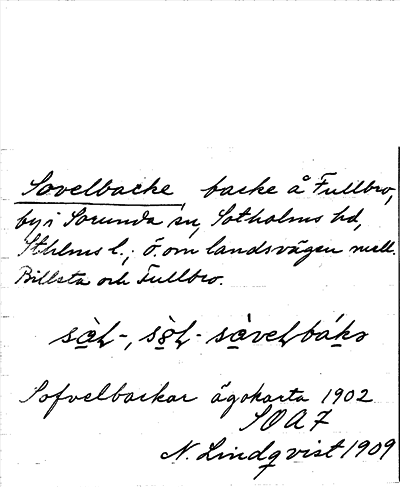 Sovelbacke, backe å Fullbro,
by i Sorunda sn, Sotholms hd,
Sthlms l.; ö. om landsvägen mell.
Billsta och Fullbro.
Sofvelbackar ägokarta 1902
SOA 7
N. Lindqvist 1909